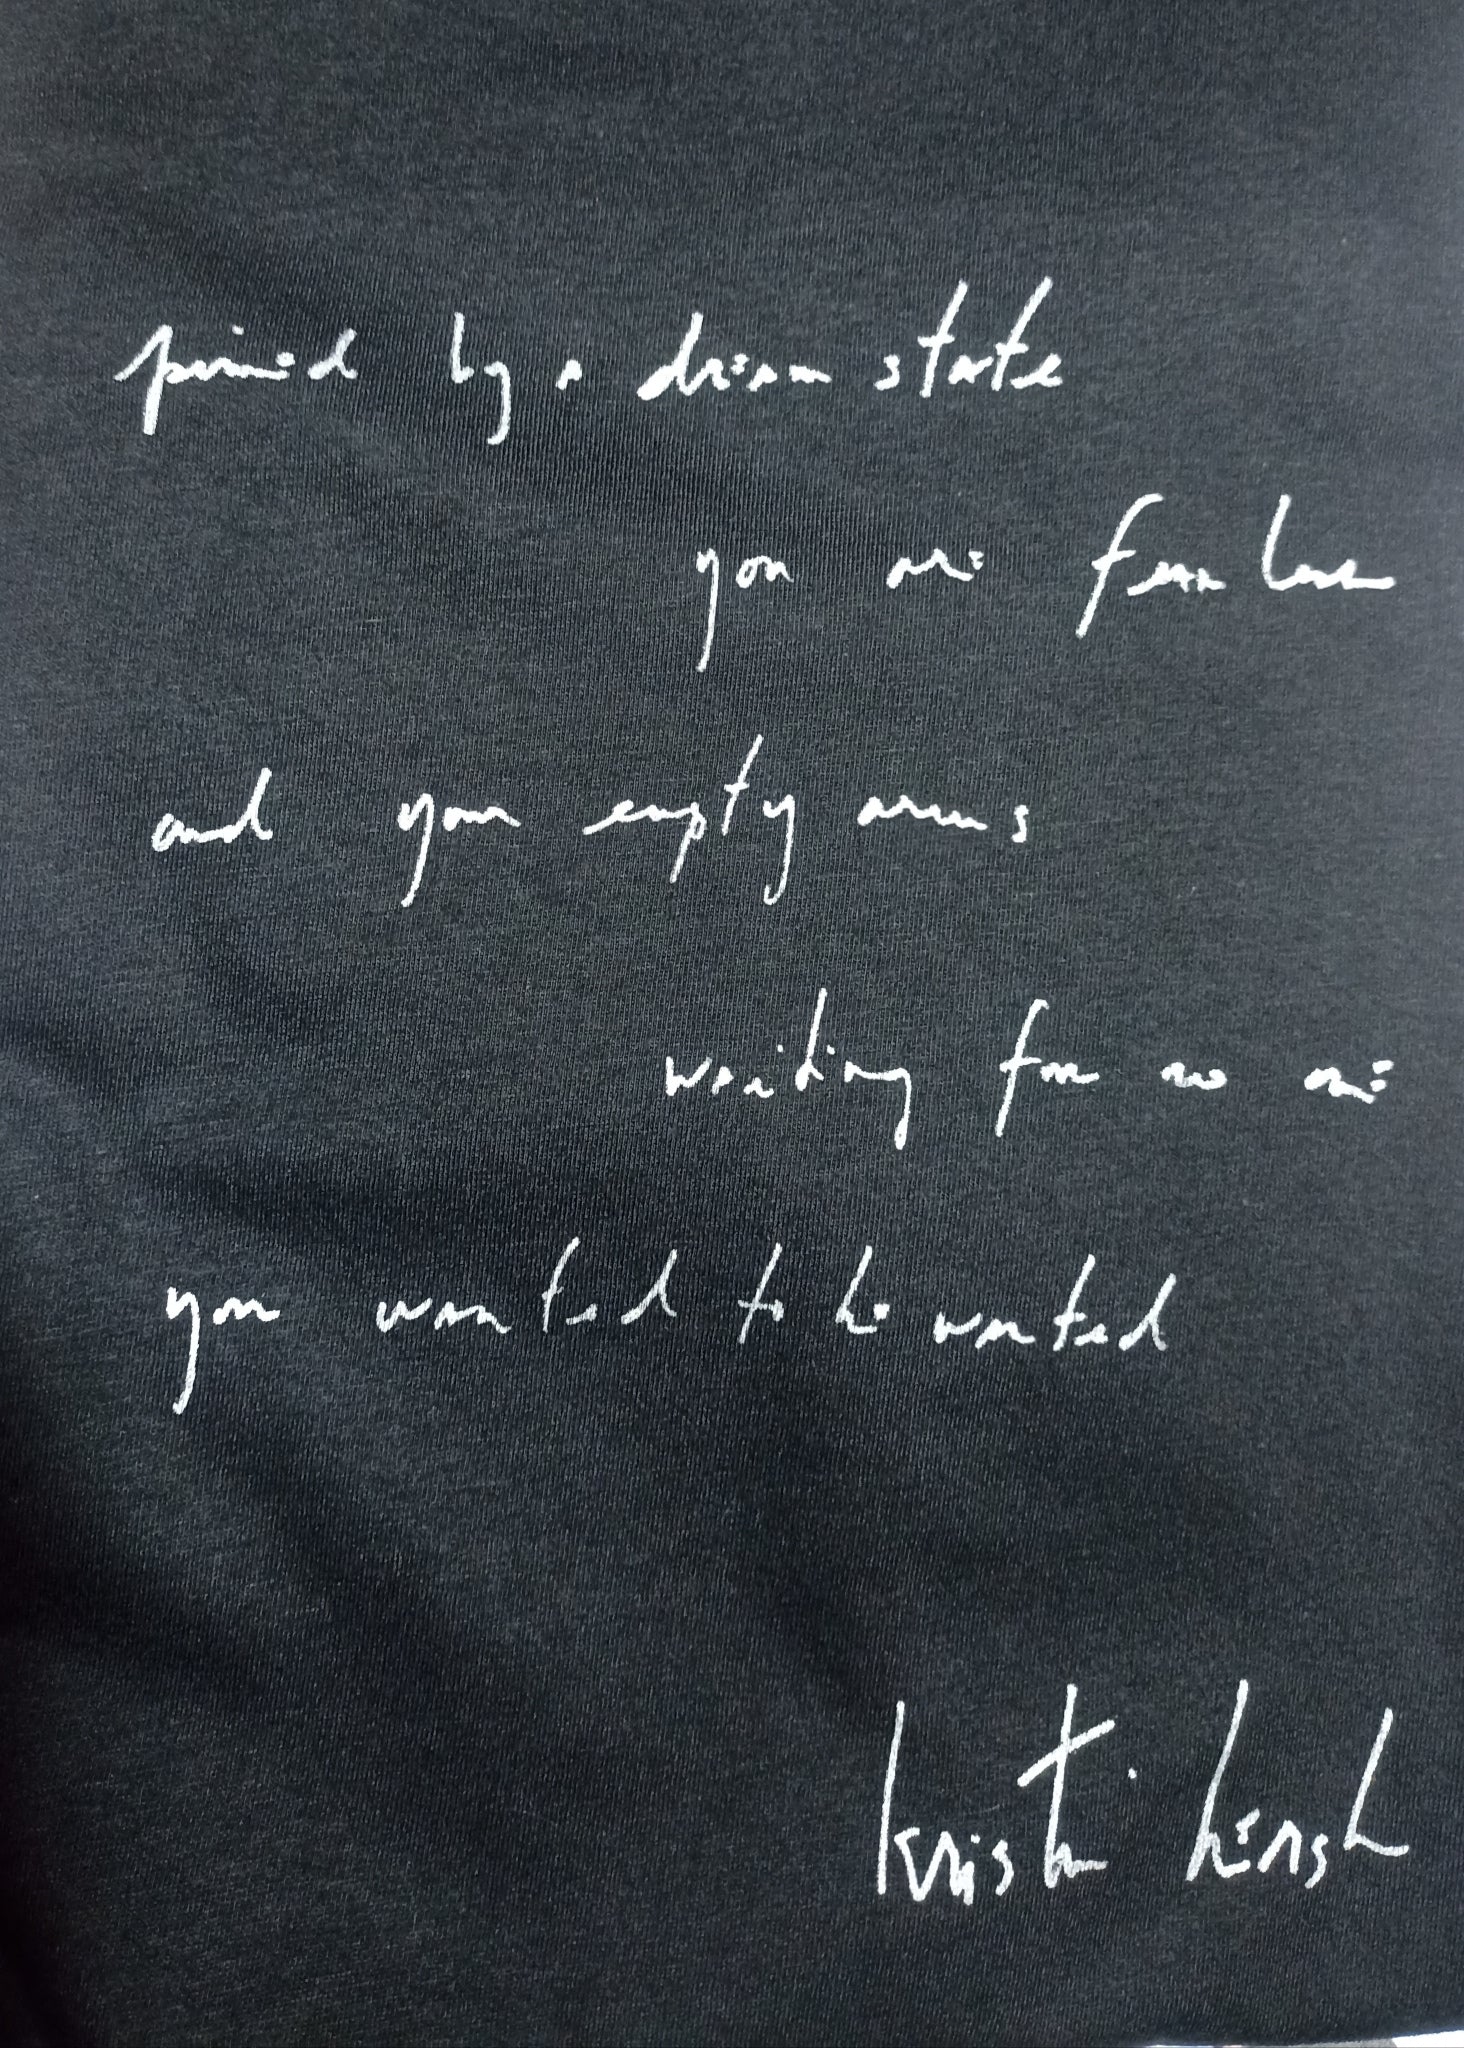 pinned by a dream state
you are fearless
and your empty arms
waiting for no one
you wanted to be wanted
kristin hersh